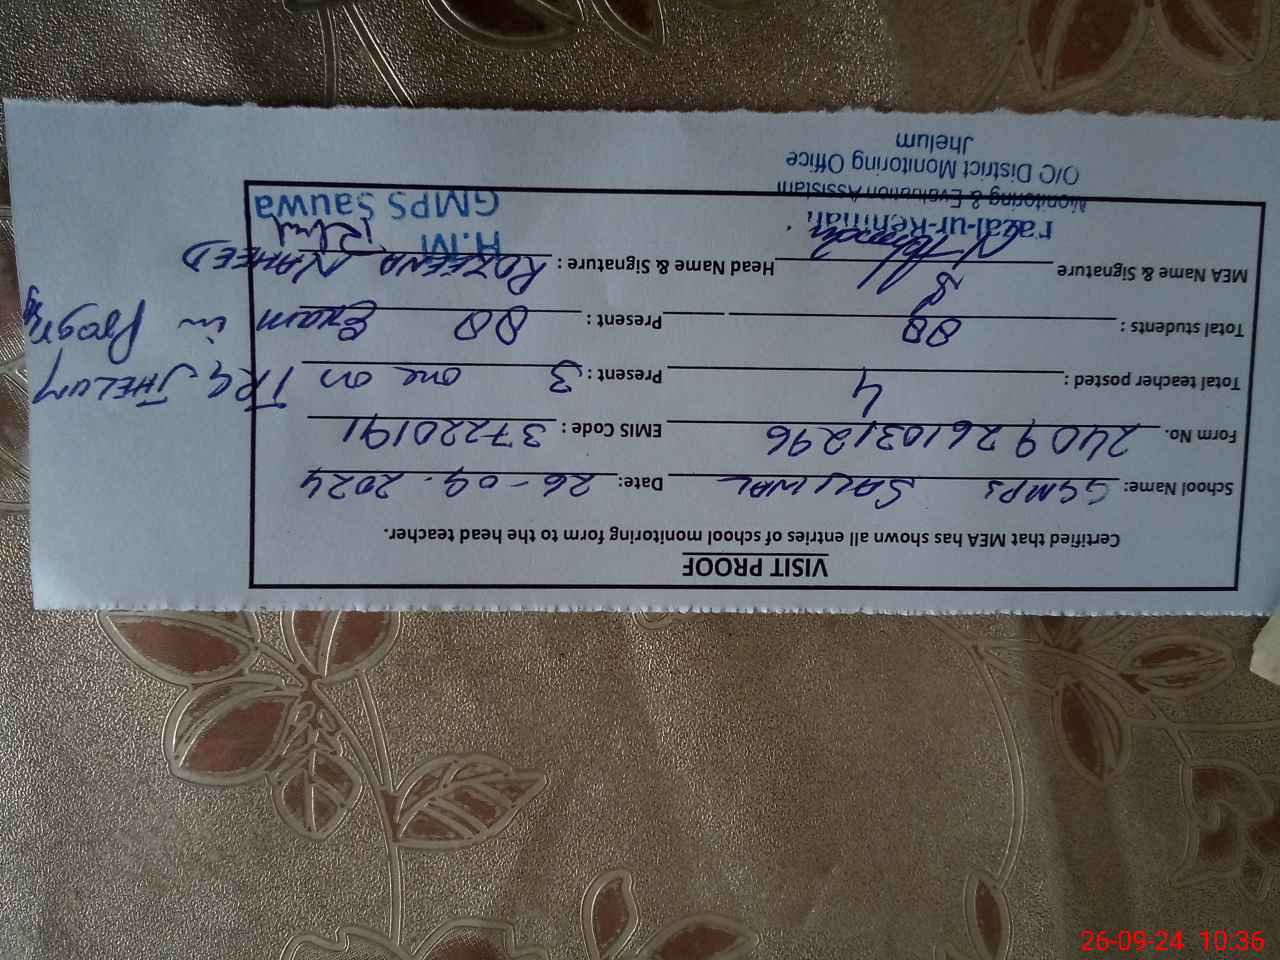 VISIT PROOF
Certified that MEA has shown all entries of school monitoring form to the head teacher.
School Name: GGMPS SAUWAL Date: 26-09-2024
Form No. 2409261031296 EMIS Code: 37220191
Total teacher posted: 4 Present: 3 one on TRG. JHELUM
Total students: 88 Present: 00 Exam in Progress
MEA Name & Signature Head Name & Signature: ROZEENA NAHEED
Fazal-ur-Rehman
H.M
Monitoring & Evaluation Assistant
GMPS Sauwa
O/C District Monitoring Office
Jhelum
26-09-24 10:36